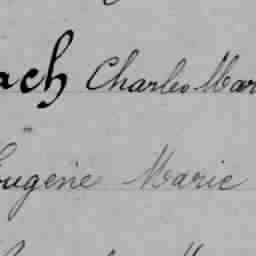 ach Charles Mar
Eugène Marie